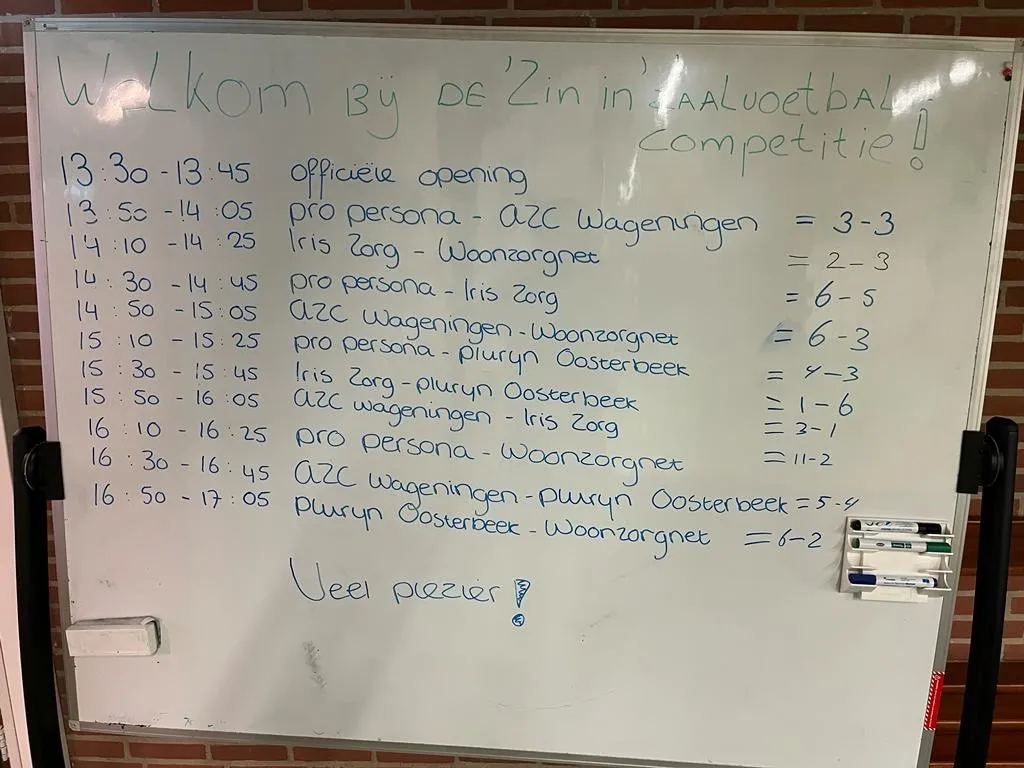 Welkom bij de 'Zin in' zaalvoetbal
competitie!
13:30 - 13:45 officiële opening
13:50 - 14:05 pro persona - AZC Wageningen = 3-3
14:10 - 14:25 Iris Zorg - Woonzorgnet = 2-3
14:30 - 14:45 pro persona - Iris Zorg = 6-5
14:50 - 15:05 AZC Wageningen - Woonzorgnet = 6-3
15:10 - 15:25 pro persona - pluryn Oosterbeek = 4-3
15:30 - 15:45 Iris Zorg - pluryn Oosterbeek = 1-6
15:50 - 16:05 AZC wageningen - Iris Zorg = 3-1
16:10 - 16:25 pro persona - Woonzorgnet = 11-2
16:30 - 16:45 AZC Wageningen - pluryn Oosterbeek = 5-4
16:50 - 17:05 pluryn Oosterbeek - Woonzorgnet = 6-2
Veel plezier!